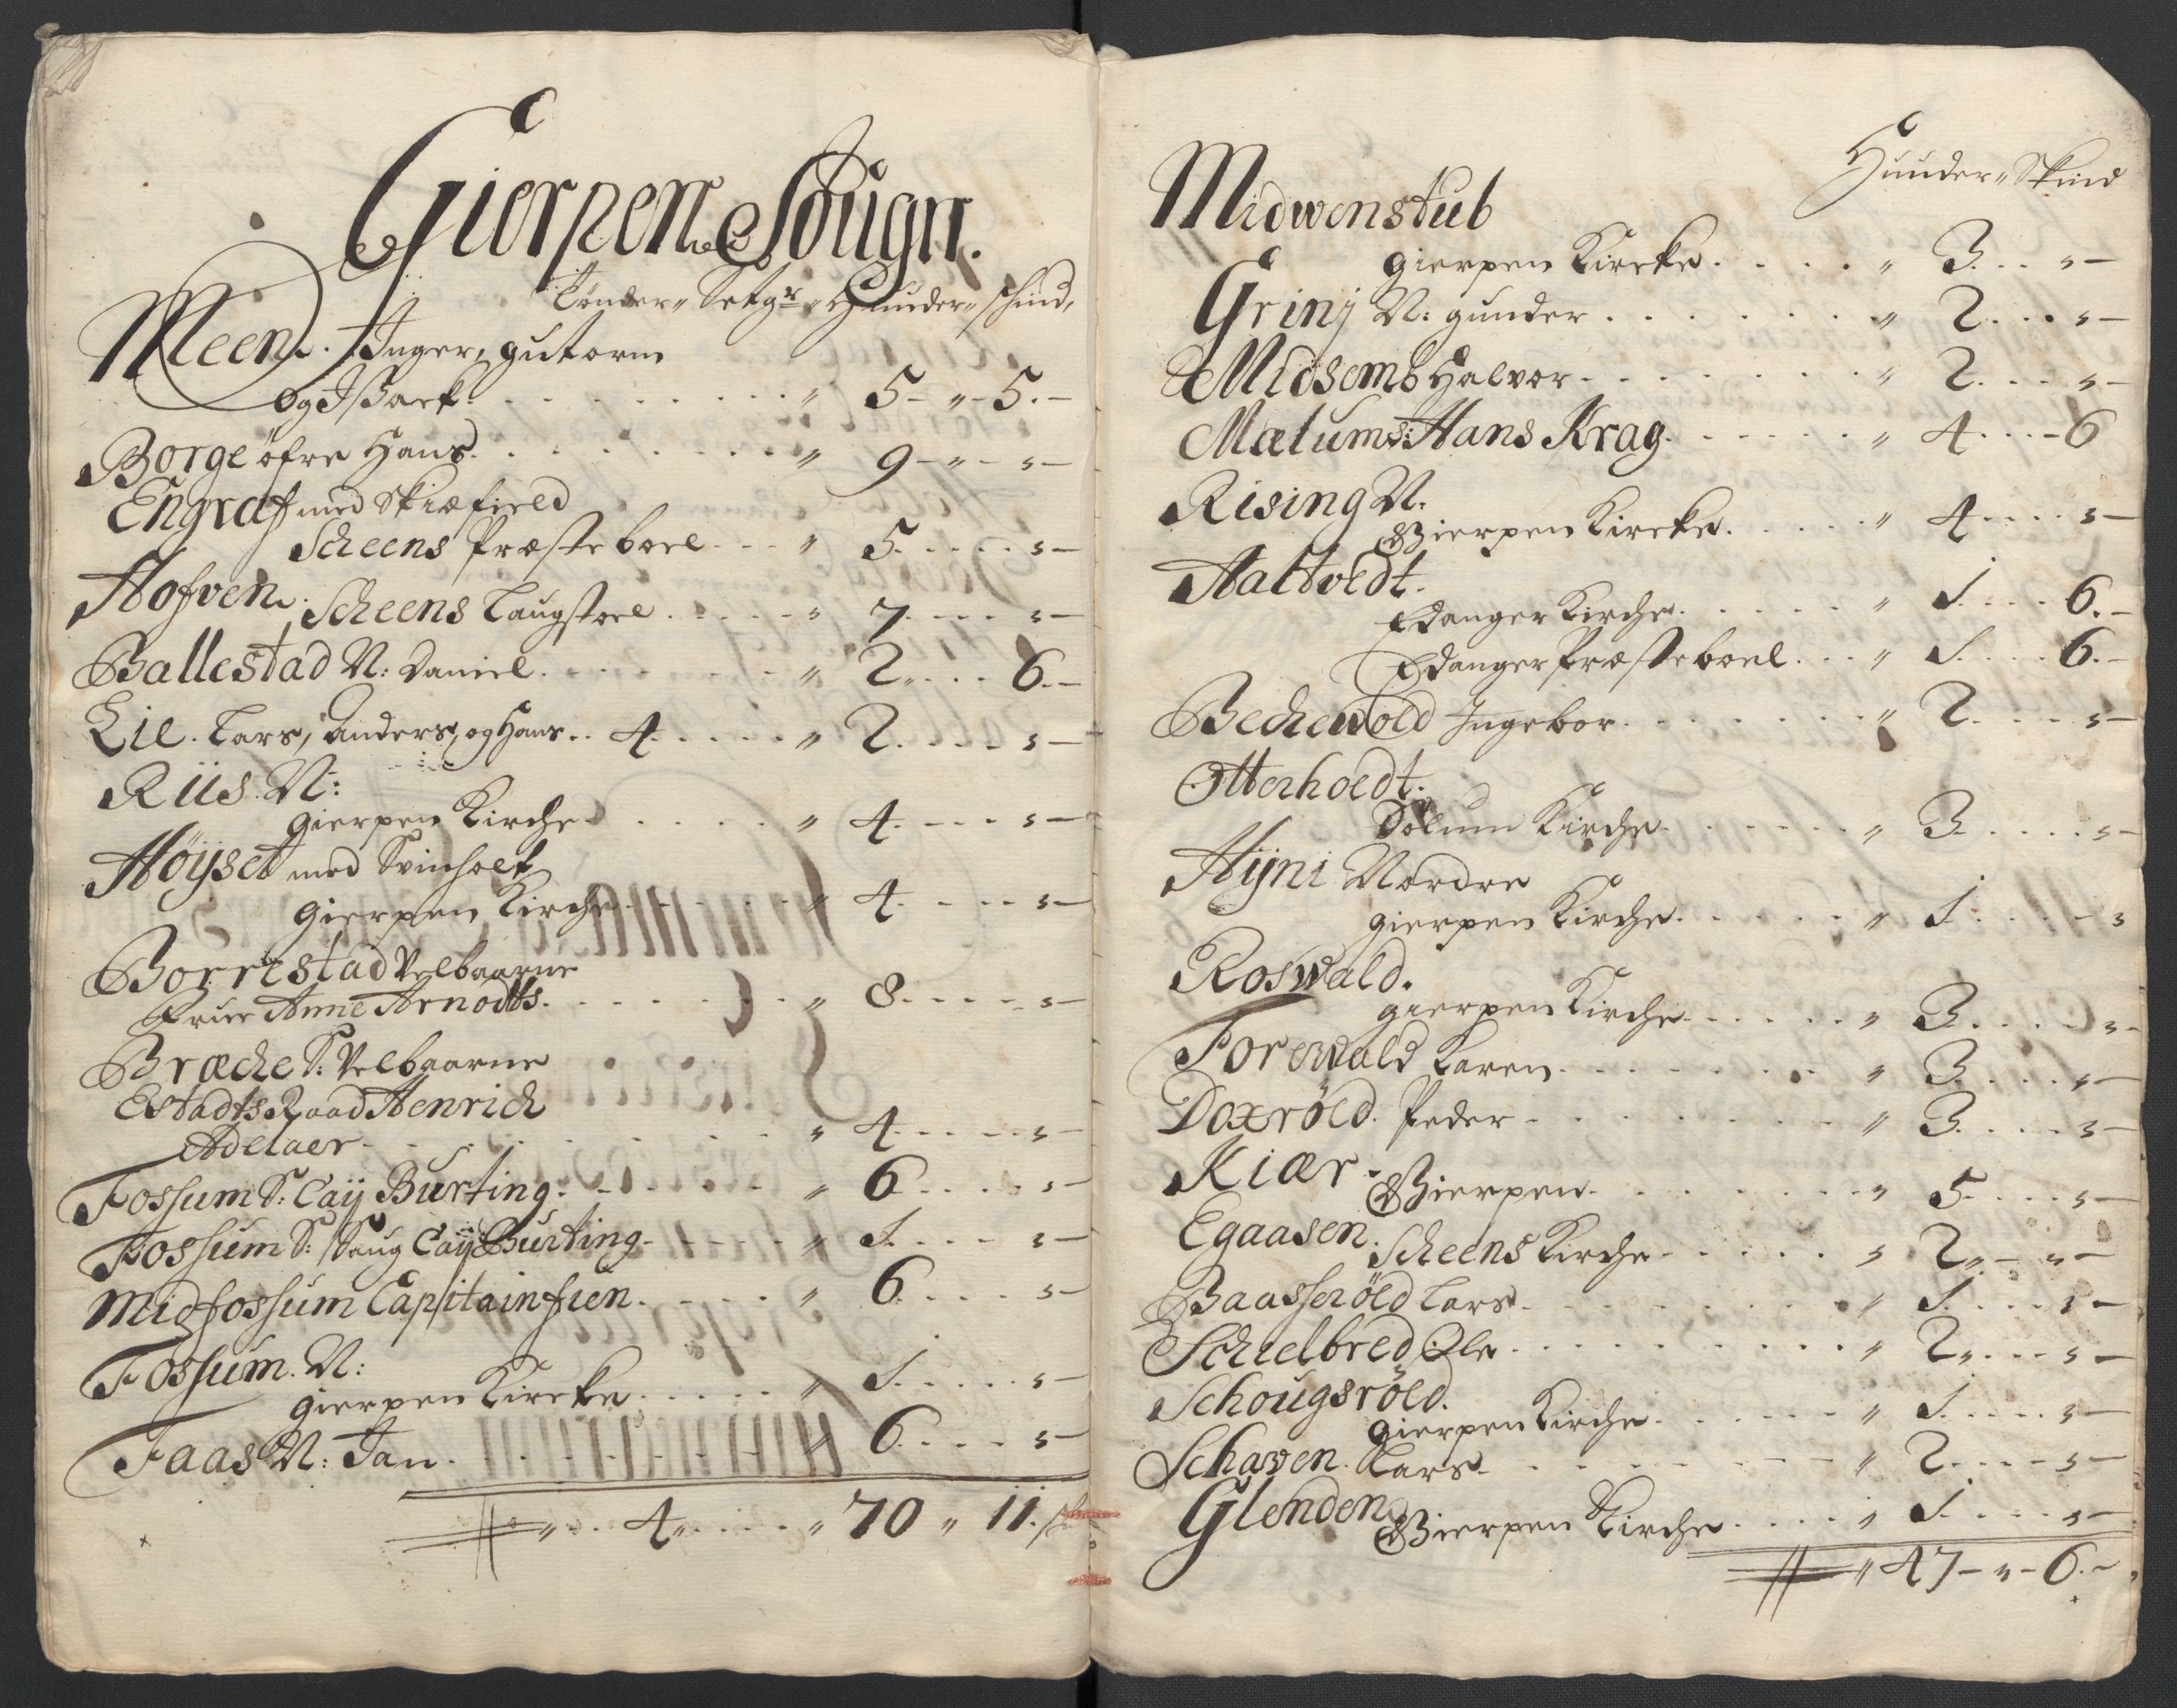 Gierpen Sougn.
Tønder „ Setgr „ Huuder „ schind,
Meen. Inger, gutorm
og Ißack. . . . . . „ 5 - „ - 5. -
Borge öfre Hans. . . . . . „ 9 - „ - „ -
Engraf med Skiæfield
Scheens Præsteboel - - - „ 5. . . . „ -
Hofven. Scheens Laugstoel . . . . „ 7. . . . „ -
Ballestad N: Daniel. . . . . „ 2. . . . 6. -
Lie. Lars, Anders, og Hans. . 4. . . . . „ 2. . . . „ -
Riis. N:
gierpen Kirche . . . . „ 4. - - - „ -
Höyset med Svinholt
gierpen Kirche . . . . „ 4. - - - „ -
Borrestad Velbaarne
Frue Anne Arnodts. . . . . . „ 8. - - - „ -
Bræche S: Velbaarne
Estadts Raad Henrich
Adelaer - . . . . . „ 4. - - - „ -
Fossum S: Caij Burting. - . . . „ 6. . . . „ -
Fossum S: Saug Caij Burting - - - - „ 1. . . . „ -
Midfossum Capitain fien. . . . . „ 6. . . . „ -
Fossum. N:
gierpen Kircke . . . . . „ 1. . . . „ -
Faas N: Jan . . . . . „ 6. . . . „ -
„ . . 4. . . . „ 70 „ 11. sk
Huuder „ Skind
Midwenstub
gierpen Kircke . . . . „ 3. . . „ -
Grinj N: gunder . . . . . . „ 2. . . . „ -
Midsemb Halvor - . . . . . „ 2. . . . „ -
Mælum S: Hans Krag. - - - - „ 4. . . - 6
Rising N.
Gierpen Kircke . . . . . „ 4. . . . „ -
Haltvedt.
Edanger Kirche . . . . . „ 1. . . . 6. -
Edanger Præsteboel. . . „ 1. . . . 6. -
Bechewold Ingebor. . . . . . „ 2. . . . „ -
Otterholdt.
Solum Kirche . . . . . „ 3. . . . „ -
Hÿni Nordre
gierpen Kirche . . . . . „ 1. . . . - „
Roswald.
gierpen Kirche - . . . . „ 3. . . . „ -
Forewald Karen. . . . . . „ 3. . . . „ -
Doxröld. Peder - . . . . . „ 3. . . . „ -
Kiær. Gierpen. . . . . . „ 5. . . . „ -
Egaasen. Scheens Kirche - . . . . „ 2. - „ -
Baasseröld Lars. . . . . . „ 1. . . . „ -
Schielbred Ole . . . . . . . „ 2. . . . „ -
Schougsröld.
gierpen Kirche . . . . . „ 1. . . . „ -
Schaven. Lars. - . . . . - „ 2. . . - „ -
Glenden Gierpen Kirche . . . . „ 1. . . . „ -
„ 47 - „ - 6. -